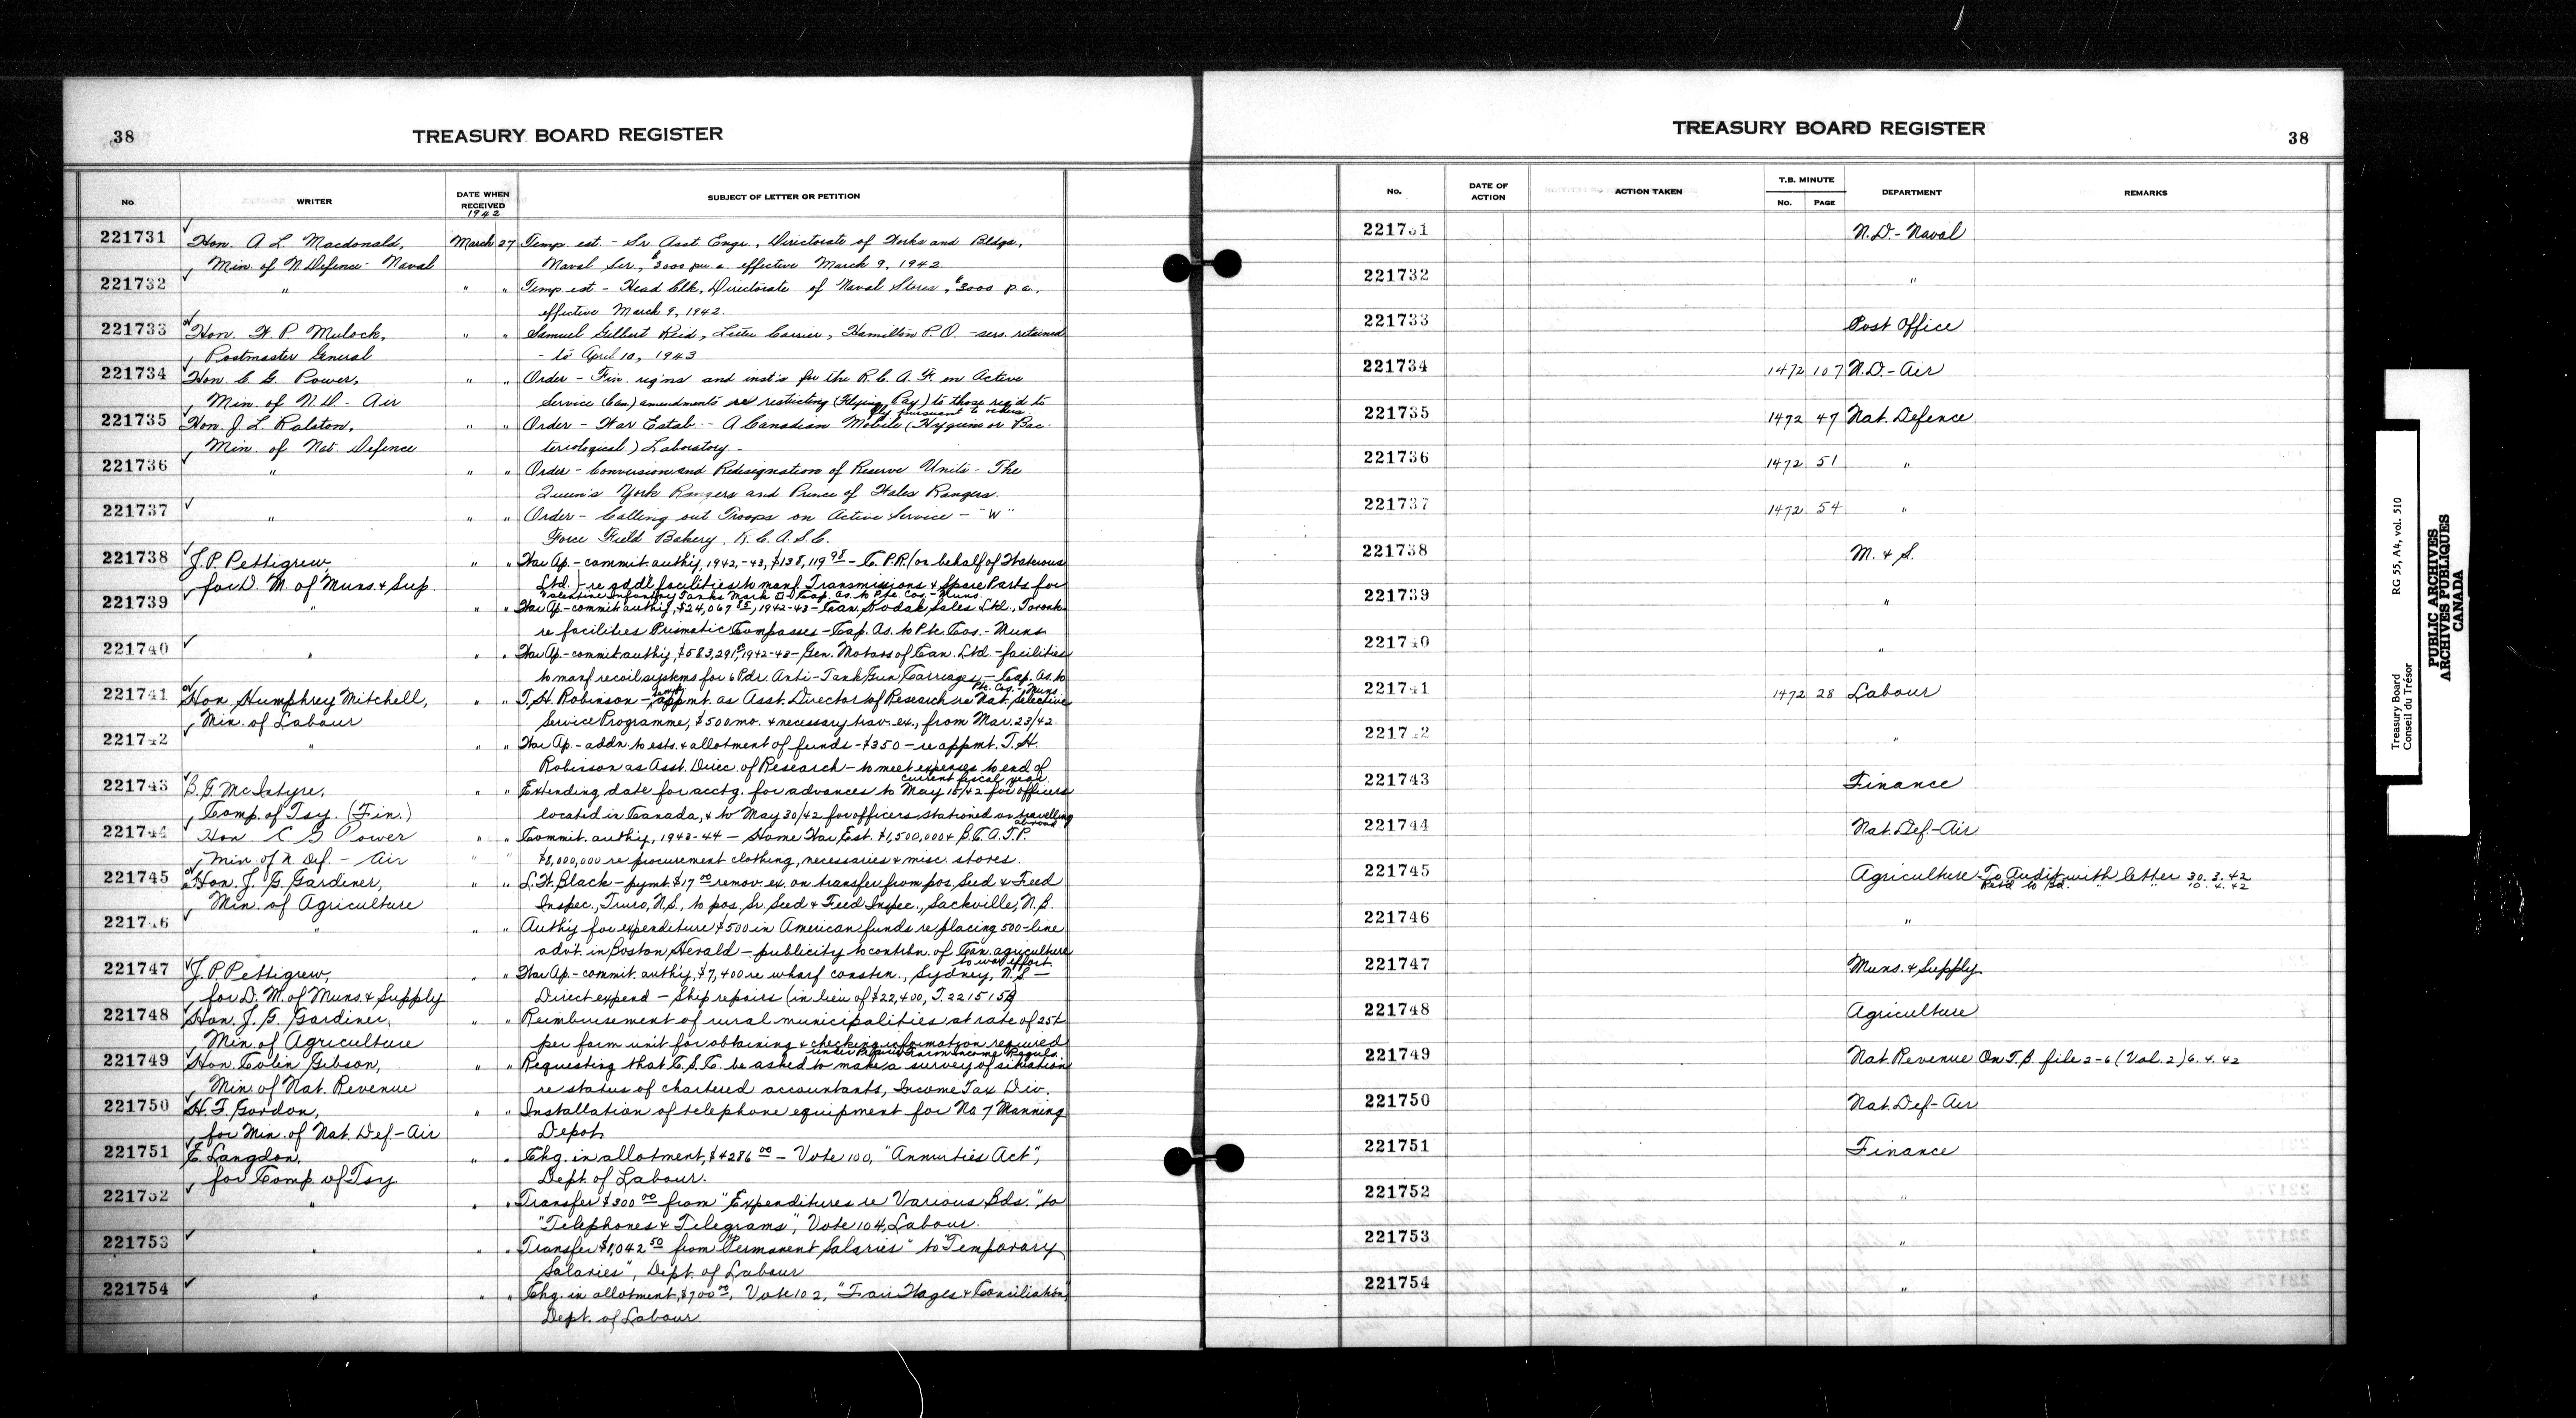 38
TREASURY BOARD REGISTER
No. WRITER DATE WHEN RECEIVED 1942 SUBJECT OF LETTER OR PETITION
221731 Hon. A. L. Macdonald, March 27 Temp. est. - Sr. Asst. Engr., Directorate of Works and Bldgs.,
Min. of N. Defence - Naval Naval Ser., $3000 per a. effective March 9, 1942.
221732 " " " Temp. est. - Head Clk, Directorate of Naval Stores, $3000 p.a.,
effective March 9, 1942.
221733 Hon. W. P. Mulock, " " Samuel Gilbert Reid, Letter Carrier, Hamilton P.O. - sers. retained
Postmaster General - to April 10, 1943
221734 Hon. C. G. Power, " " Order - Fin. reg'ns and inst's for the R.C.A.F. on Active
Min. of N.D. - Air Service (Can.) amendments re restricting (Flying Pay) to those req'd to
fly pursuant to orders.
221735 Hon. J. L. Ralston, " " Order - War Estab. - A Canadian Mobile (Hygiene or Bac-
Min. of Nat. Defence teriological) Laboratory -
221736 " " " Order - Conversion and Redesignation of Reserve Units - The
Queen's York Rangers and Prince of Wales Rangers.
221737 " " " Order - Calling out Troops on Active Service - "W"
Force Field Bakery, R.C.A.S.C.
221738 J. P. Pettigrew, " " War Ap. - commit. authy, 1942-43, $138,119.98 - C.P.R. (on behalf of Waterous
for D. M. of Muns. & Sup. Ltd.) - re addl facilities to manf Transmissions & Spare Parts for
Valentine Infantry Tanks Mark - Cap. As. to Pte. Cos. - Muns.
221739 " " " War Ap. - commit authy, $24,067, 1942-43 - Can. Kodak Sales Ltd., Toronto
re facilities Prismatic Compasses - Cap. As. to Pte. Cos. - Muns.
221740 " " " War Ap. - commit authy, $583,291, 1942-43 - Gen. Motors of Can. Ltd. - facilities
to manf recoil systems for 6 Pdr. Anti-Tank Gun Carriages - Cap. As. to
Pte. Cos. - Muns.
221741 Hon. Humphrey Mitchell, " " T. H. Robinson - temp appmt. as Asst. Director of Research re Nat. Selective
Min. of Labour Service Programme, $500 mo. & necessary trav. ex., from Mar. 23/42.
221742 " " " War Ap. - addn. to ests. & allotment of funds - $350 - re appmt. T. H.
Robinson as Asst. Direc. of Research - to meet expenses to end of
current fiscal year.
221743 B. G. McIntyre, " " Extending date for acctg. for advances to May 15/42 for officers
Comp. of Tsy. (Fin.) located in Canada, & to May 30/42 for officers stationed or travelling
abroad.
221744 Hon. C G Power " " Commit. authy, 1943-44 - Home War Est. $1,500,000 & B.C.A.T.P.
Min. of N Def. - Air " " $8,000,000 re procurement clothing, necessaries & misc. stores.
221745 Hon. J. G. Gardiner, " " L. W. Black - pymt. $17.00 remov. ex. on transfer from pos. Seed & Feed
Min. of Agriculture Inspec., Truro, N.S., to pos. Sr. Seed & Feed Inspec., Sackville, N.B.
221746 " " " Authy for expenditure $500 in American funds re placing 500-line
advt. in Boston Herald - publicity to contribn. of Can. agriculture
to war effort.
221747 J. P. Pettigrew, " " War Ap. - commit. authy, $7,400 re wharf constrn., Sydney, N.S. -
for D. M. of Muns. & Supply Direct expend - Ship repairs (in lieu of $22,400, T. 221515B)
221748 Hon. J. G. Gardiner, " " Reimbursement of rural municipalities at rate of 25¢
Min. of Agriculture per farm unit for obtaining & checking information required
under Prairie Farm Income Reguls.
221749 Hon. Colin Gibson, " " Requesting that C.S.C. be asked to make a survey of situation
Min. of Nat. Revenue re status of chartered accountants, Income Tax Div.
221750 H. F. Gordon, " " Installation of telephone equipment for No. 7 Manning
for Min. of Nat. Def - Air Depot.
221751 C. Langdon, " " Chg. in allotment, $4286.00 - Vote 100, "Annuities Act",
for Comp. of Tsy Dept. of Labour.
221752 " " " Transfer $300.00 from "Expenditures re Various Bds." to
"Telephones & Telegrams", Vote 104, Labour.
221753 " " " Transfer $1,042.50 from "Permanent Salaries" to "Temporary
Salaries", Dept. of Labour
221754 " " " Chg. in allotment, $700.00, Vote 102, "Fair Wages & Conciliation",
Dept. of Labour.
TREASURY BOARD REGISTER
38
No. DATE OF ACTION ACTION TAKEN T.B. MINUTE No. PAGE DEPARTMENT REMARKS
221731 N.D. - Naval
221732 "
221733 Post Office
221734 1472 107 N.D. - Air
221735 1472 47 Nat. Defence
221736 1472 51 "
221737 1472 54 "
221738 M. & S.
221739 "
221740 "
221741 1472 28 Labour
221742 "
221743 Finance
221744 Nat. Def - Air
221745 Agriculture To Audit with letter 30.3.42
Retd to Bd. " " 10.4.42
221746 "
221747 Muns. & Supply
221748 Agriculture
221749 Nat. Revenue On T.B. file 2-6 (Vol. 2) 6.4.42
221750 Nat. Def - Air
221751 Finance
221752 "
221753 "
221754 "
Treasury Board
Conseil du Trésor
RG 55, A4, vol. 510
PUBLIC ARCHIVES
ARCHIVES PUBLIQUES
CANADA